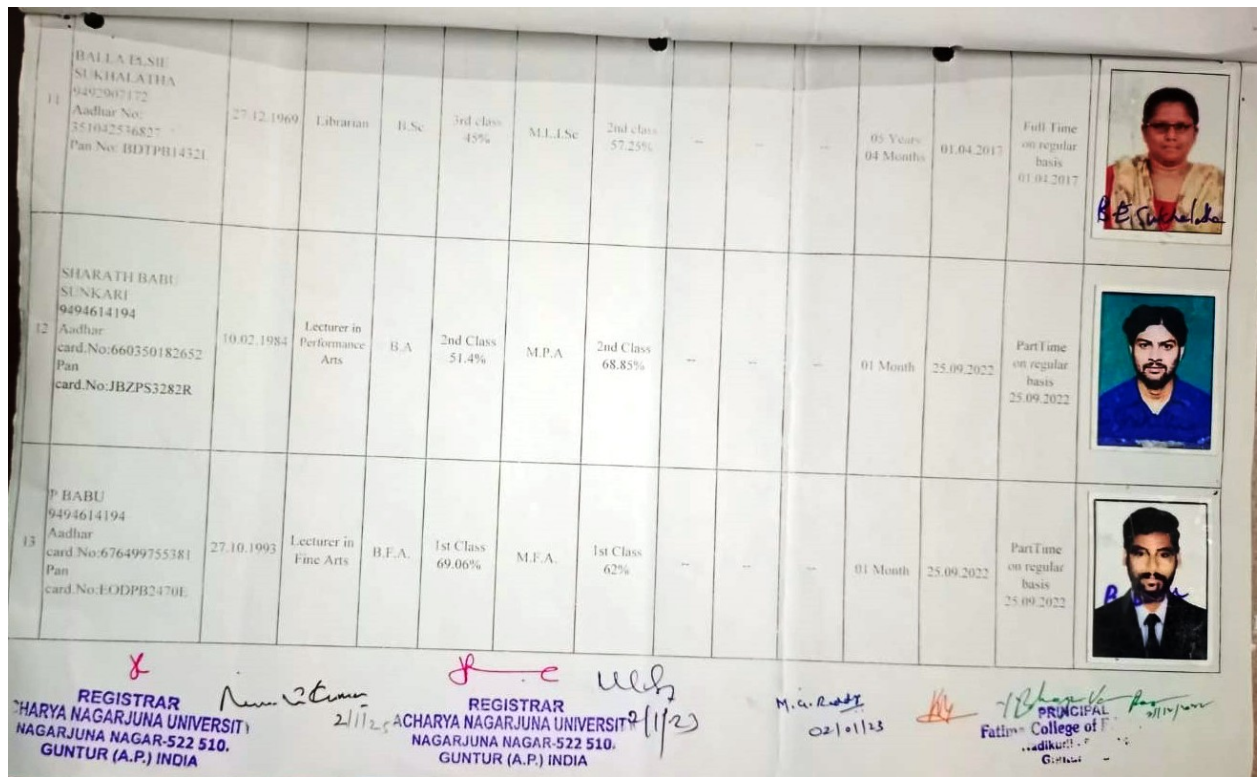 11
BALLA ELSIE
SUKHALATHA
9492907172
Aadhar No:
351042536827
Pan No: BDTPB1432L
27.12.1969
Librarian
B.Sc
3rd class
45%
M.L.I.Sc
2nd class
57.25%
--
--
--
05 Years
04 Months
01.04.2017
Full Time
on regular
basis
01.04.2017
B E Sukhalatha
12
SHARATH BABU
SUNKARI
9494614194
Aadhar
card.No:660350182652
Pan
card.No:JBZPS3282R
10.02.1984
Lecturer in
Performance
Arts
B.A
2nd Class
51.4%
M.P.A
2nd Class
68.85%
--
--
--
01 Month
25.09.2022
PartTime
on regular
basis
25.09.2022
13
P BABU
9494614194
Aadhar
card.No:676499755381
Pan
card.No:EODPB2470E
27.10.1993
Lecturer in
Fine Arts
B.F.A.
1st Class
69.06%
M.F.A.
1st Class
62%
--
--
--
01 Month
25.09.2022
PartTime
on regular
basis
25.09.2022
REGISTRAR
CHARYA NAGARJUNA UNIVERSITY
NAGARJUNA NAGAR-522 510.
GUNTUR (A.P.) INDIA
Kumar
REGISTRAR
ACHARYA NAGARJUNA UNIVERSIT
NAGARJUNA NAGAR-522 510.
GUNTUR (A.P.) INDIA
2/1/23
M.G. Reddy
02/01/23
PRINCIPAL
Fatima College of